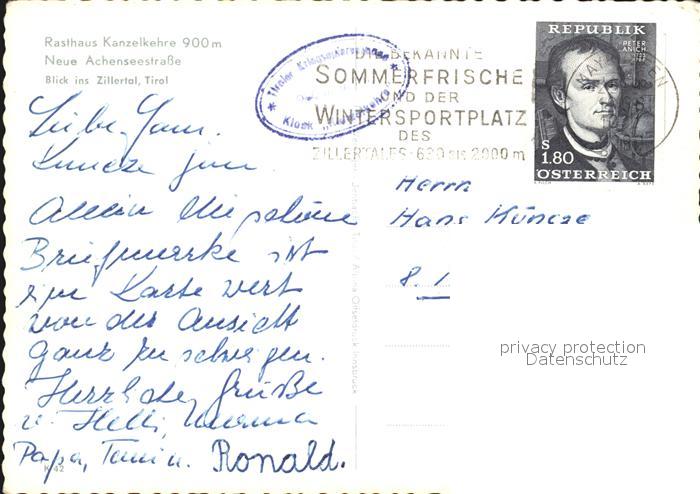 Rasthaus Kanzelkehre 900 m
Neue Achenseestraße
Blick ins Zillertal, Tirol
Tiroler
Kiosk
DER BEKANNTE
SOMMERFRISCHE
UND DER
WINTERSPORTPLATZ
DES
ZILLERTALES · 630 bis 2000 m
REPUBLIK
PETER
ANICH
S
1.80
ÖSTERREICH
Liebe Fam.
Kuncze jun.
Allein die schöne
Briefmarke ist
eine Karte wert
von der Ansicht
ganz zu schweigen.
Herzliche Grüße
v. Helli, Mama
Papa, Tami u. Ronald.
K 42
Herrn
Hans Küncze
8. 1
privacy protection
Datenschutz